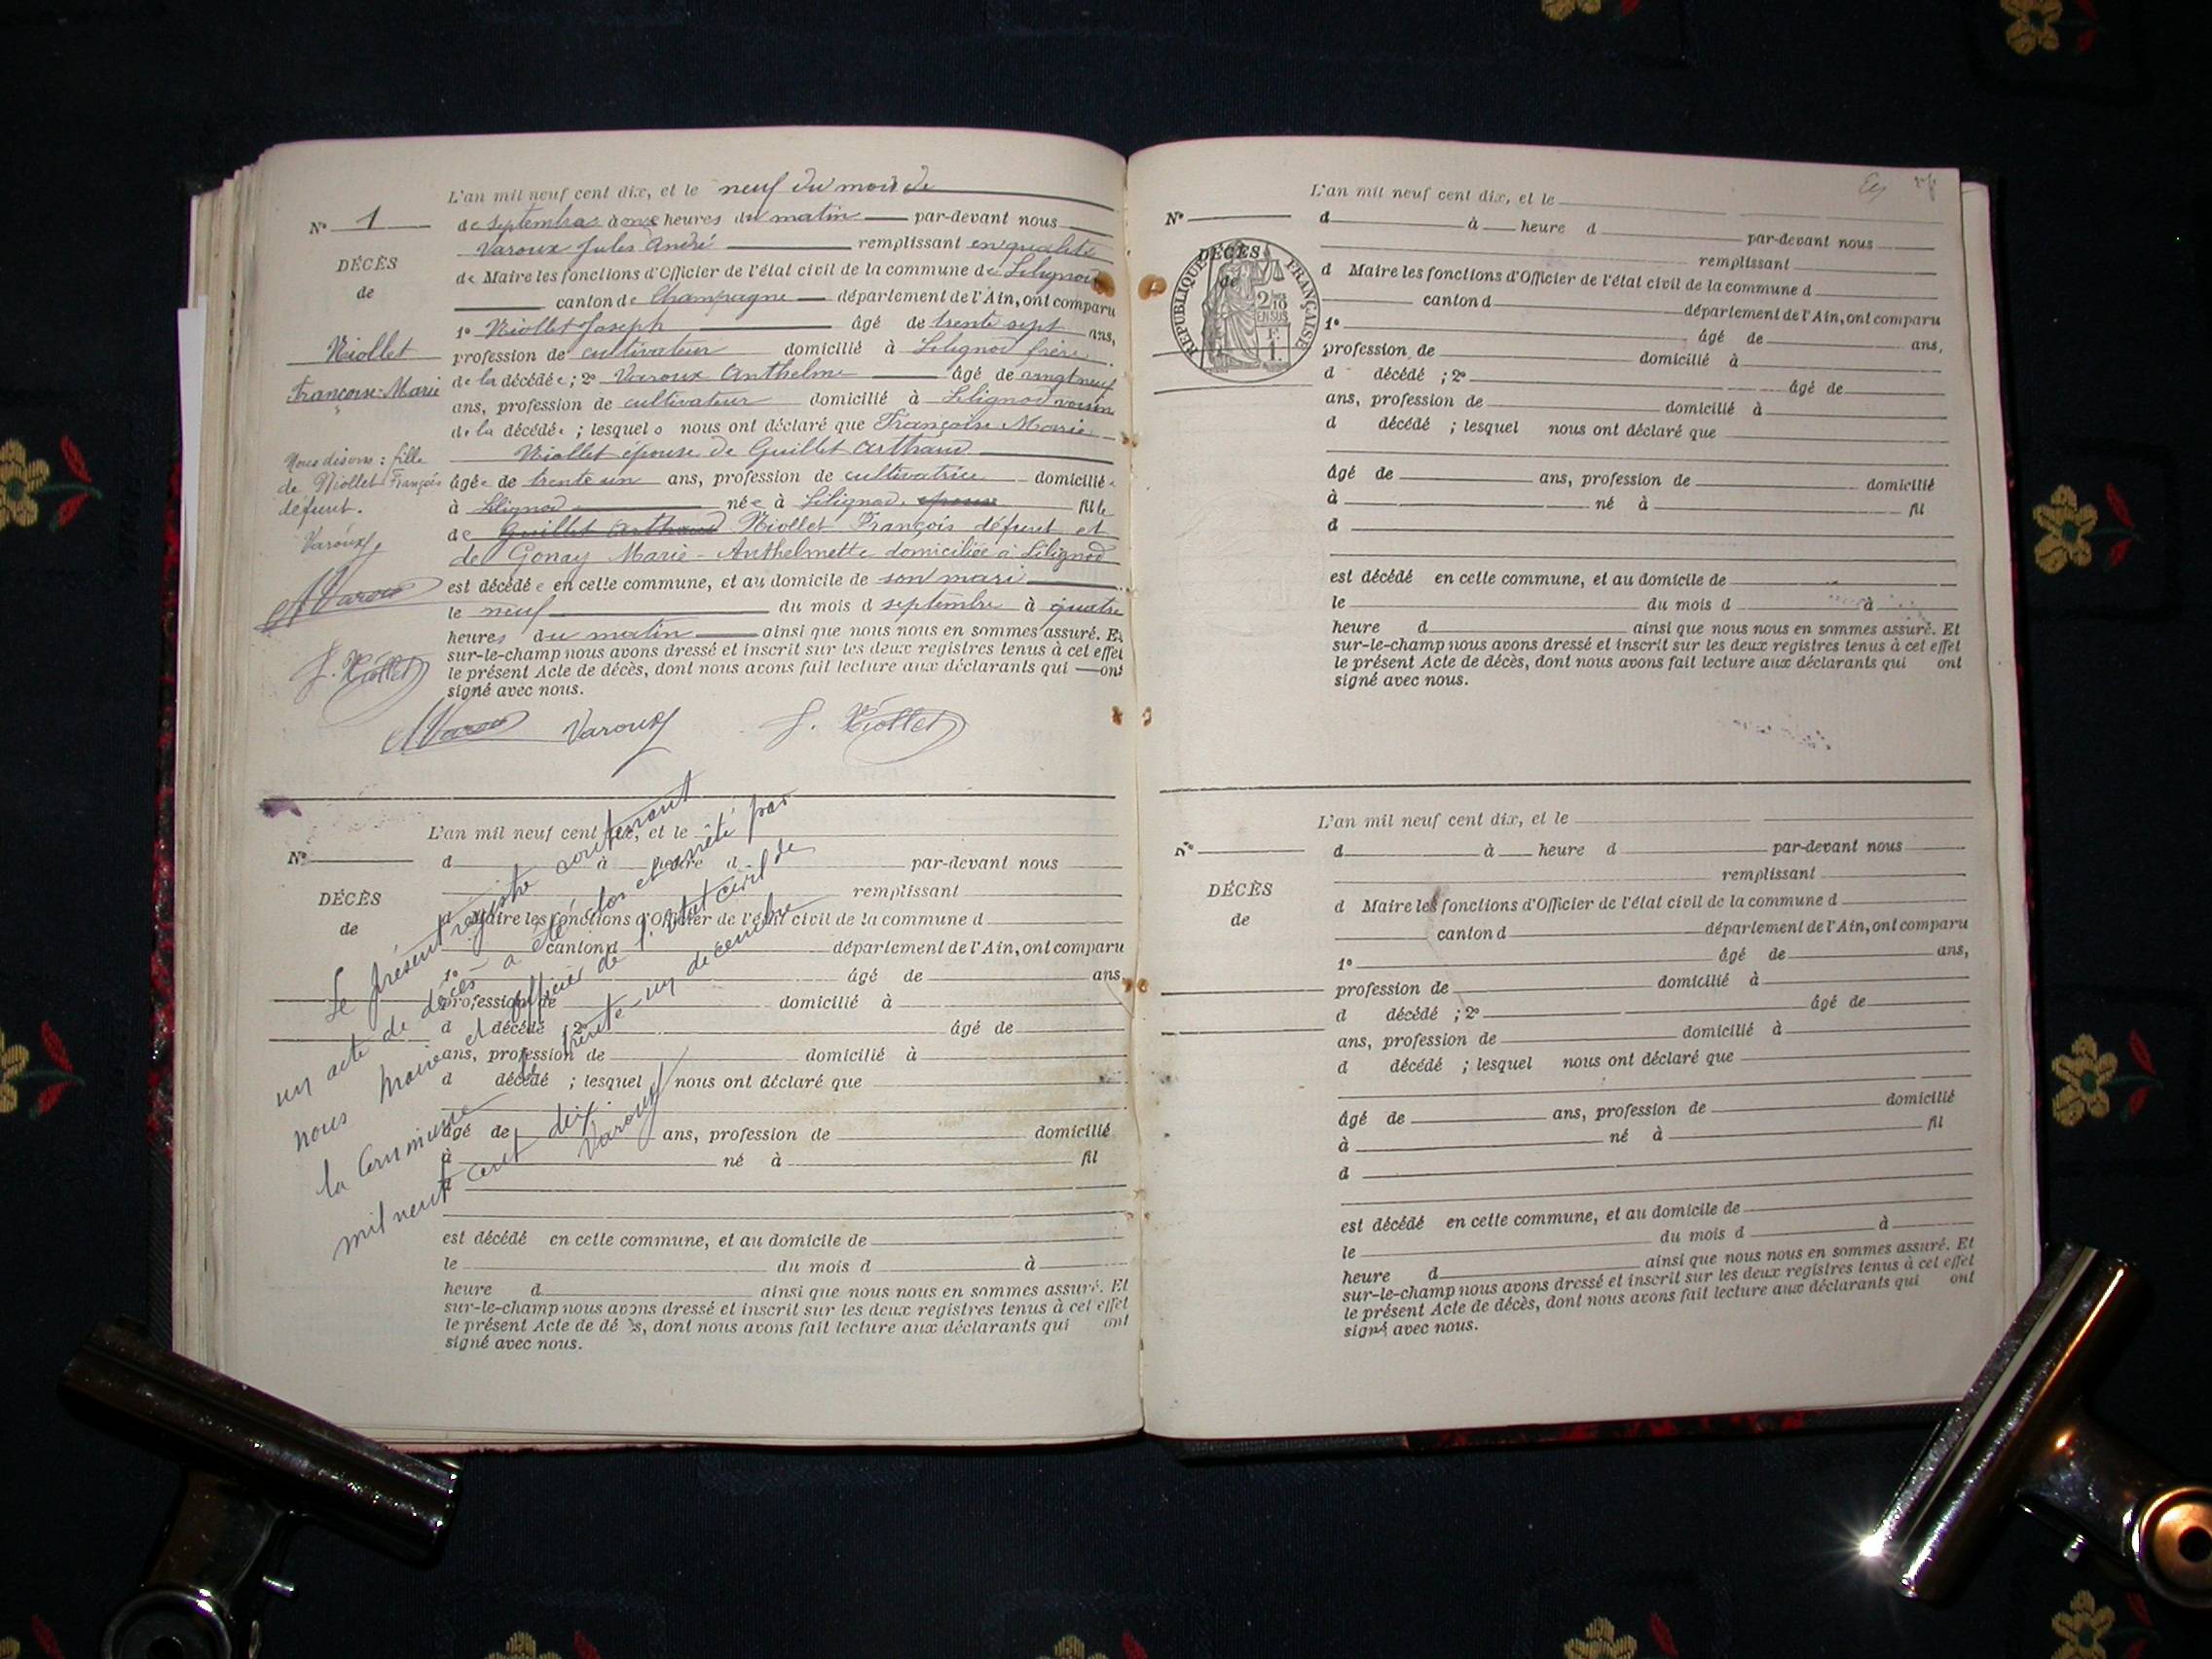 L'an mil neuf cent dix, et le neuf du mois de
N° 1
de septembre à onze heures du matin par-devant nous
Varoux Jules André remplissant en qualité
DÉCÈS
de Maire les fonctions d'Officier de l'état civil de la commune de Lilignod
de
canton de Champagne département de l'Ain, ont comparu
1° Niollet Joseph âgé de trente sept ans,
Niollet
profession de cultivateur domicilié à Lilignod frère
Françoise-Marie
de la décédée ; 2° Varoux Anthelme âgé de vingt neuf
ans, profession de cultivateur domicilié à Lilignod voisin
de la décédée ; lesquels nous ont déclaré que Françoise Marie
Niollet épouse de Guillet Arthaud
Nous disons : fille
de Niollet François
défunt.
Varoux
âgée de trente un ans, profession de cultivatrice domiciliée
à Lilignod née à Lilignod. epouse fille
de Guillet Arthaud Niollet François défunt et
de Gonay Marie-Anthelmette domiciliée à Lilignod
est décédée en cette commune, et au domicile de son mari
AVaroux
le neuf du mois d septembre à quatre
heures du matin ainsi que nous nous en sommes assuré. Et
sur-le-champ nous avons dressé et inscrit sur les deux registres tenus à cet effet
J. Niollet
le présent Acte de décès, dont nous avons fait lecture aux déclarants qui ont
signé avec nous.
AVaroux Varoux J. Niollet
L'an mil neuf cent dix, et le
N°
d à heure d par-devant nous
remplissant
DÉCÈS
d Maire les fonctions d'Officier de l'état civil de la commune d
de
canton d département de l'Ain, ont comparu
1° âgé de ans,
profession de domicilié à
d décédé ; 2° âgé de
ans, profession de domicilié à
d décédé ; lesquel nous ont déclaré que
âgé de ans, profession de domicilié
à né à fil
d
est décédé en cette commune, et au domicile de
le du mois d à
heure d ainsi que nous nous en sommes assuré. Et
sur-le-champ nous avons dressé et inscrit sur les deux registres tenus à cet effet
le présent Acte de décès, dont nous avons fait lecture aux déclarants qui ont
signé avec nous.
Le présent registre contenant
un acte de décès a été clos et arrêté par
nous maire et officier de l'état civil de
la Commune le trente-un décembre
mil neuf cent dix.
Varoux
L'an mil neuf cent dix, et le
N°
d à heure d par-devant nous
remplissant
DÉCÈS
de
RÉPUBLIQUE FRANÇAISE
2/10
EN SUS
F.
1.
d Maire les fonctions d'Officier de l'état civil de la commune d
canton d département de l'Ain, ont comparu
1° âgé de ans,
profession de domicilié à
d décédé ; 2° âgé de
ans, profession de domicilié à
d décédé ; lesquel nous ont déclaré que
âgé de ans, profession de domicilié
à né à fil
d
est décédé en cette commune, et au domicile de
le du mois d à
heure d ainsi que nous nous en sommes assuré. Et
sur-le-champ nous avons dressé et inscrit sur les deux registres tenus à cet effet
le présent Acte de décès, dont nous avons fait lecture aux déclarants qui ont
signé avec nous.
L'an mil neuf cent dix, et le
N°
d à heure d par-devant nous
remplissant
DÉCÈS
d Maire les fonctions d'Officier de l'état civil de la commune d
de
canton d département de l'Ain, ont comparu
1° âgé de ans,
profession de domicilié à
d décédé ; 2° âgé de
ans, profession de domicilié à
d décédé ; lesquel nous ont déclaré que
âgé de ans, profession de domicilié
à né à fil
d
est décédé en cette commune, et au domicile de
le du mois d à
heure d ainsi que nous nous en sommes assuré. Et
sur-le-champ nous avons dressé et inscrit sur les deux registres tenus à cet effet
le présent Acte de décès, dont nous avons fait lecture aux déclarants qui ont
signé avec nous.